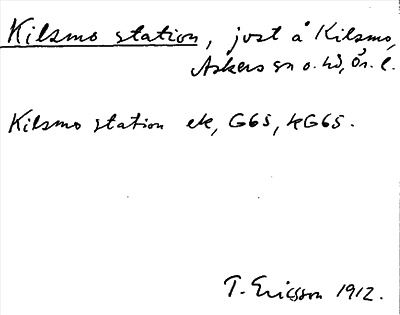 Kilsmo station, jvst å Kilsmo,
Askers sn o. hd, Ör. l.
Kilsmo station ek, G65, kG65.
T. Ericsson 1912.